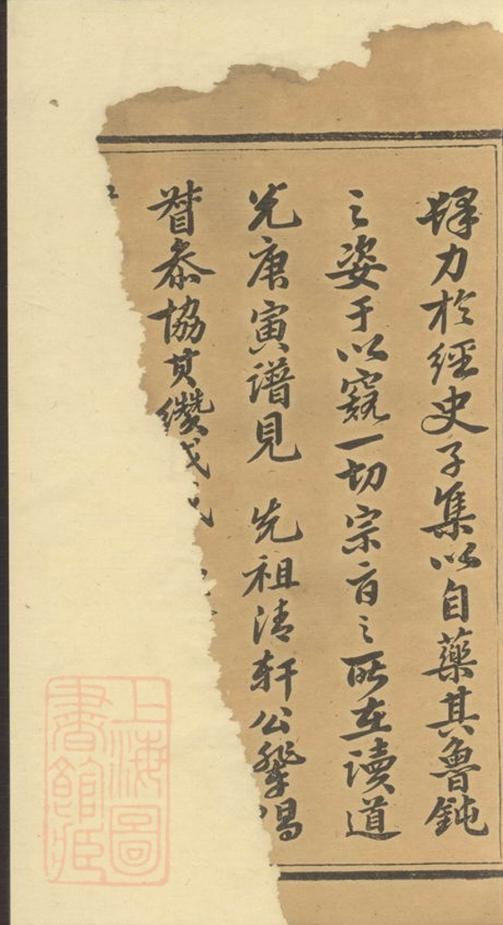 殫力於經史子集以自藥其魯鈍
之姿于以窺一切宗旨之所在讀道
光庚寅譜見 先祖清軒公肇唱
晉泰協其纘
上海圖
書館藏